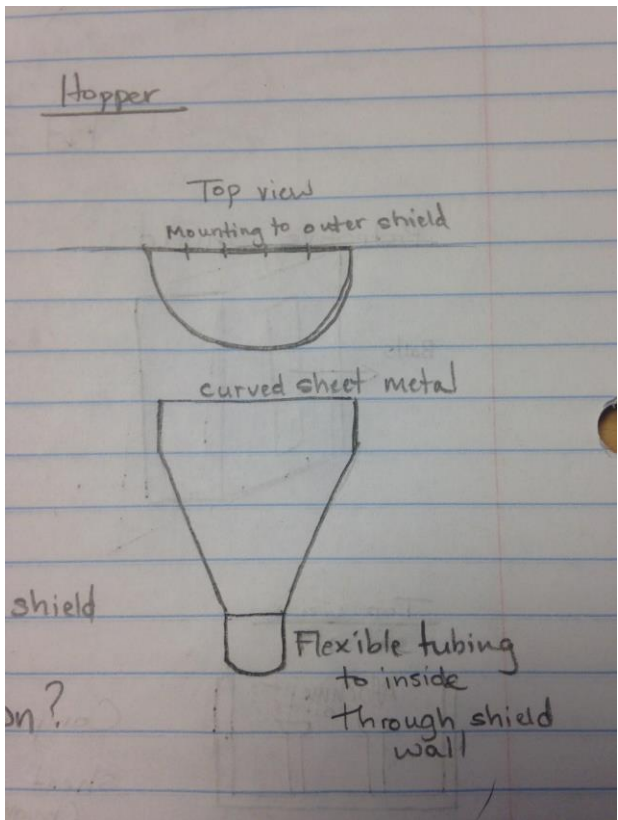 Hopper
Top view
Mounting to outer shield
curved sheet metal
shield
Flexible tubing
to inside
on?
through shield
wall